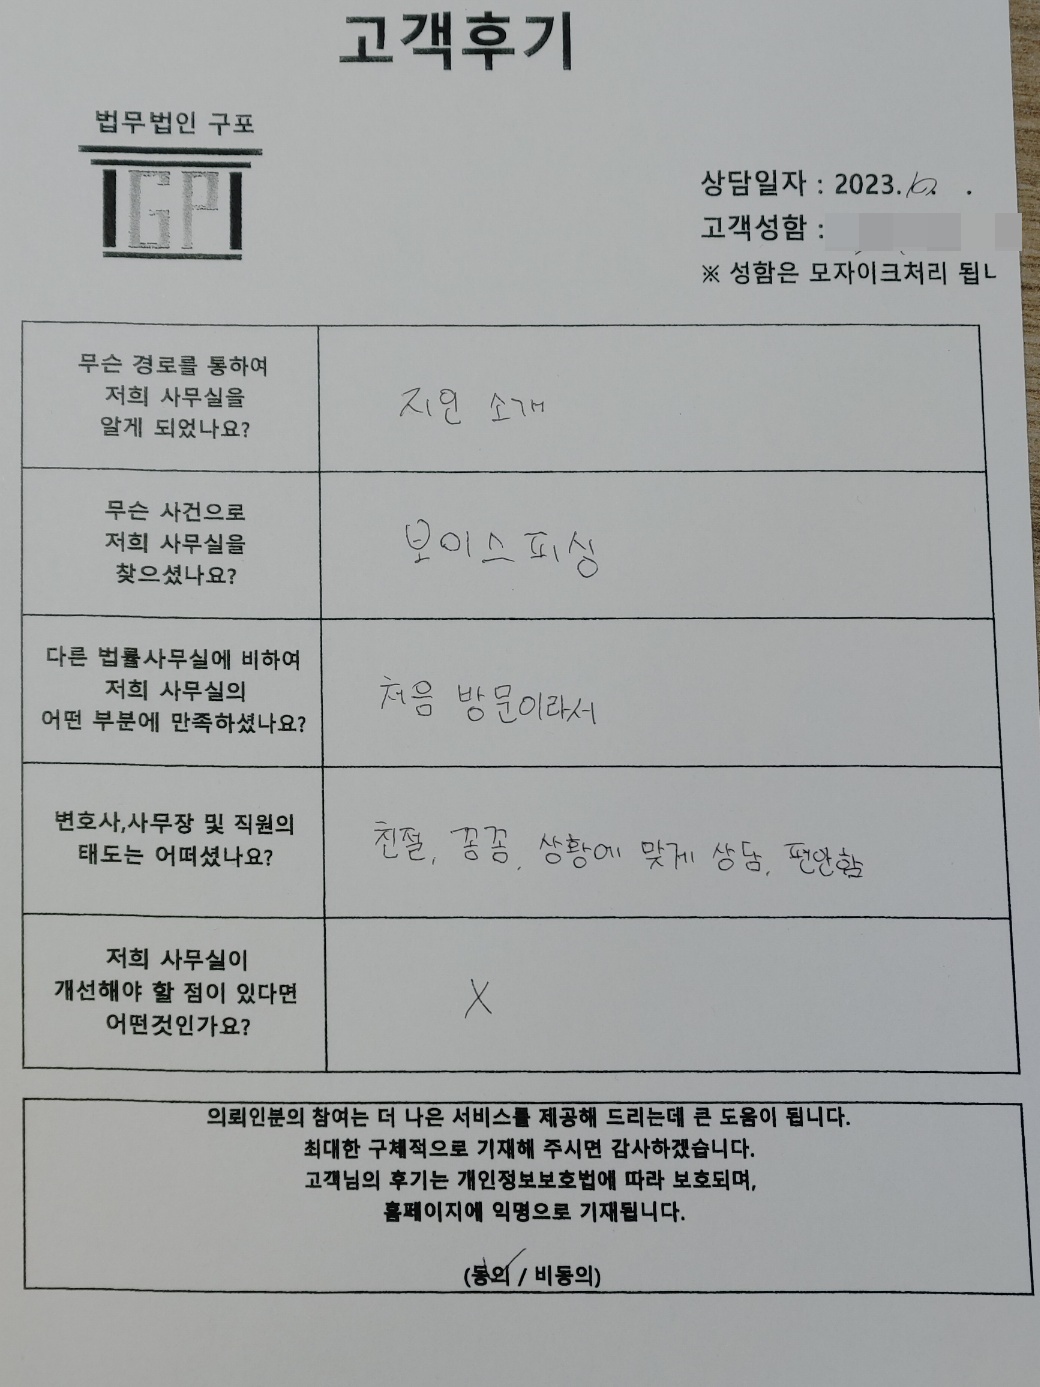 고객후기
법무법인 구포
GP
상담일자 : 2023.10. .
고객성함 :
※ 성함은 모자이크처리 됩ㄴ
무슨 경로를 통하여
저희 사무실을
알게 되었나요?
지인 소개
무슨 사건으로
저희 사무실을
찾으셨나요?
보이스피싱
다른 법률사무실에 비하여
저희 사무실의
어떤 부분에 만족하셨나요?
처음 방문이라서
변호사,사무장 및 직원의
태도는 어떠셨나요?
친절, 꼼꼼, 상황에 맞게 상담, 편안함
저희 사무실이
개선해야 할 점이 있다면
어떤것인가요?
X
의뢰인분의 참여는 더 나은 서비스를 제공해 드리는데 큰 도움이 됩니다.
최대한 구체적으로 기재해 주시면 감사하겠습니다.
고객님의 후기는 개인정보보호법에 따라 보호되며,
홈페이지에 익명으로 기재됩니다.
(동의 / 비동의)